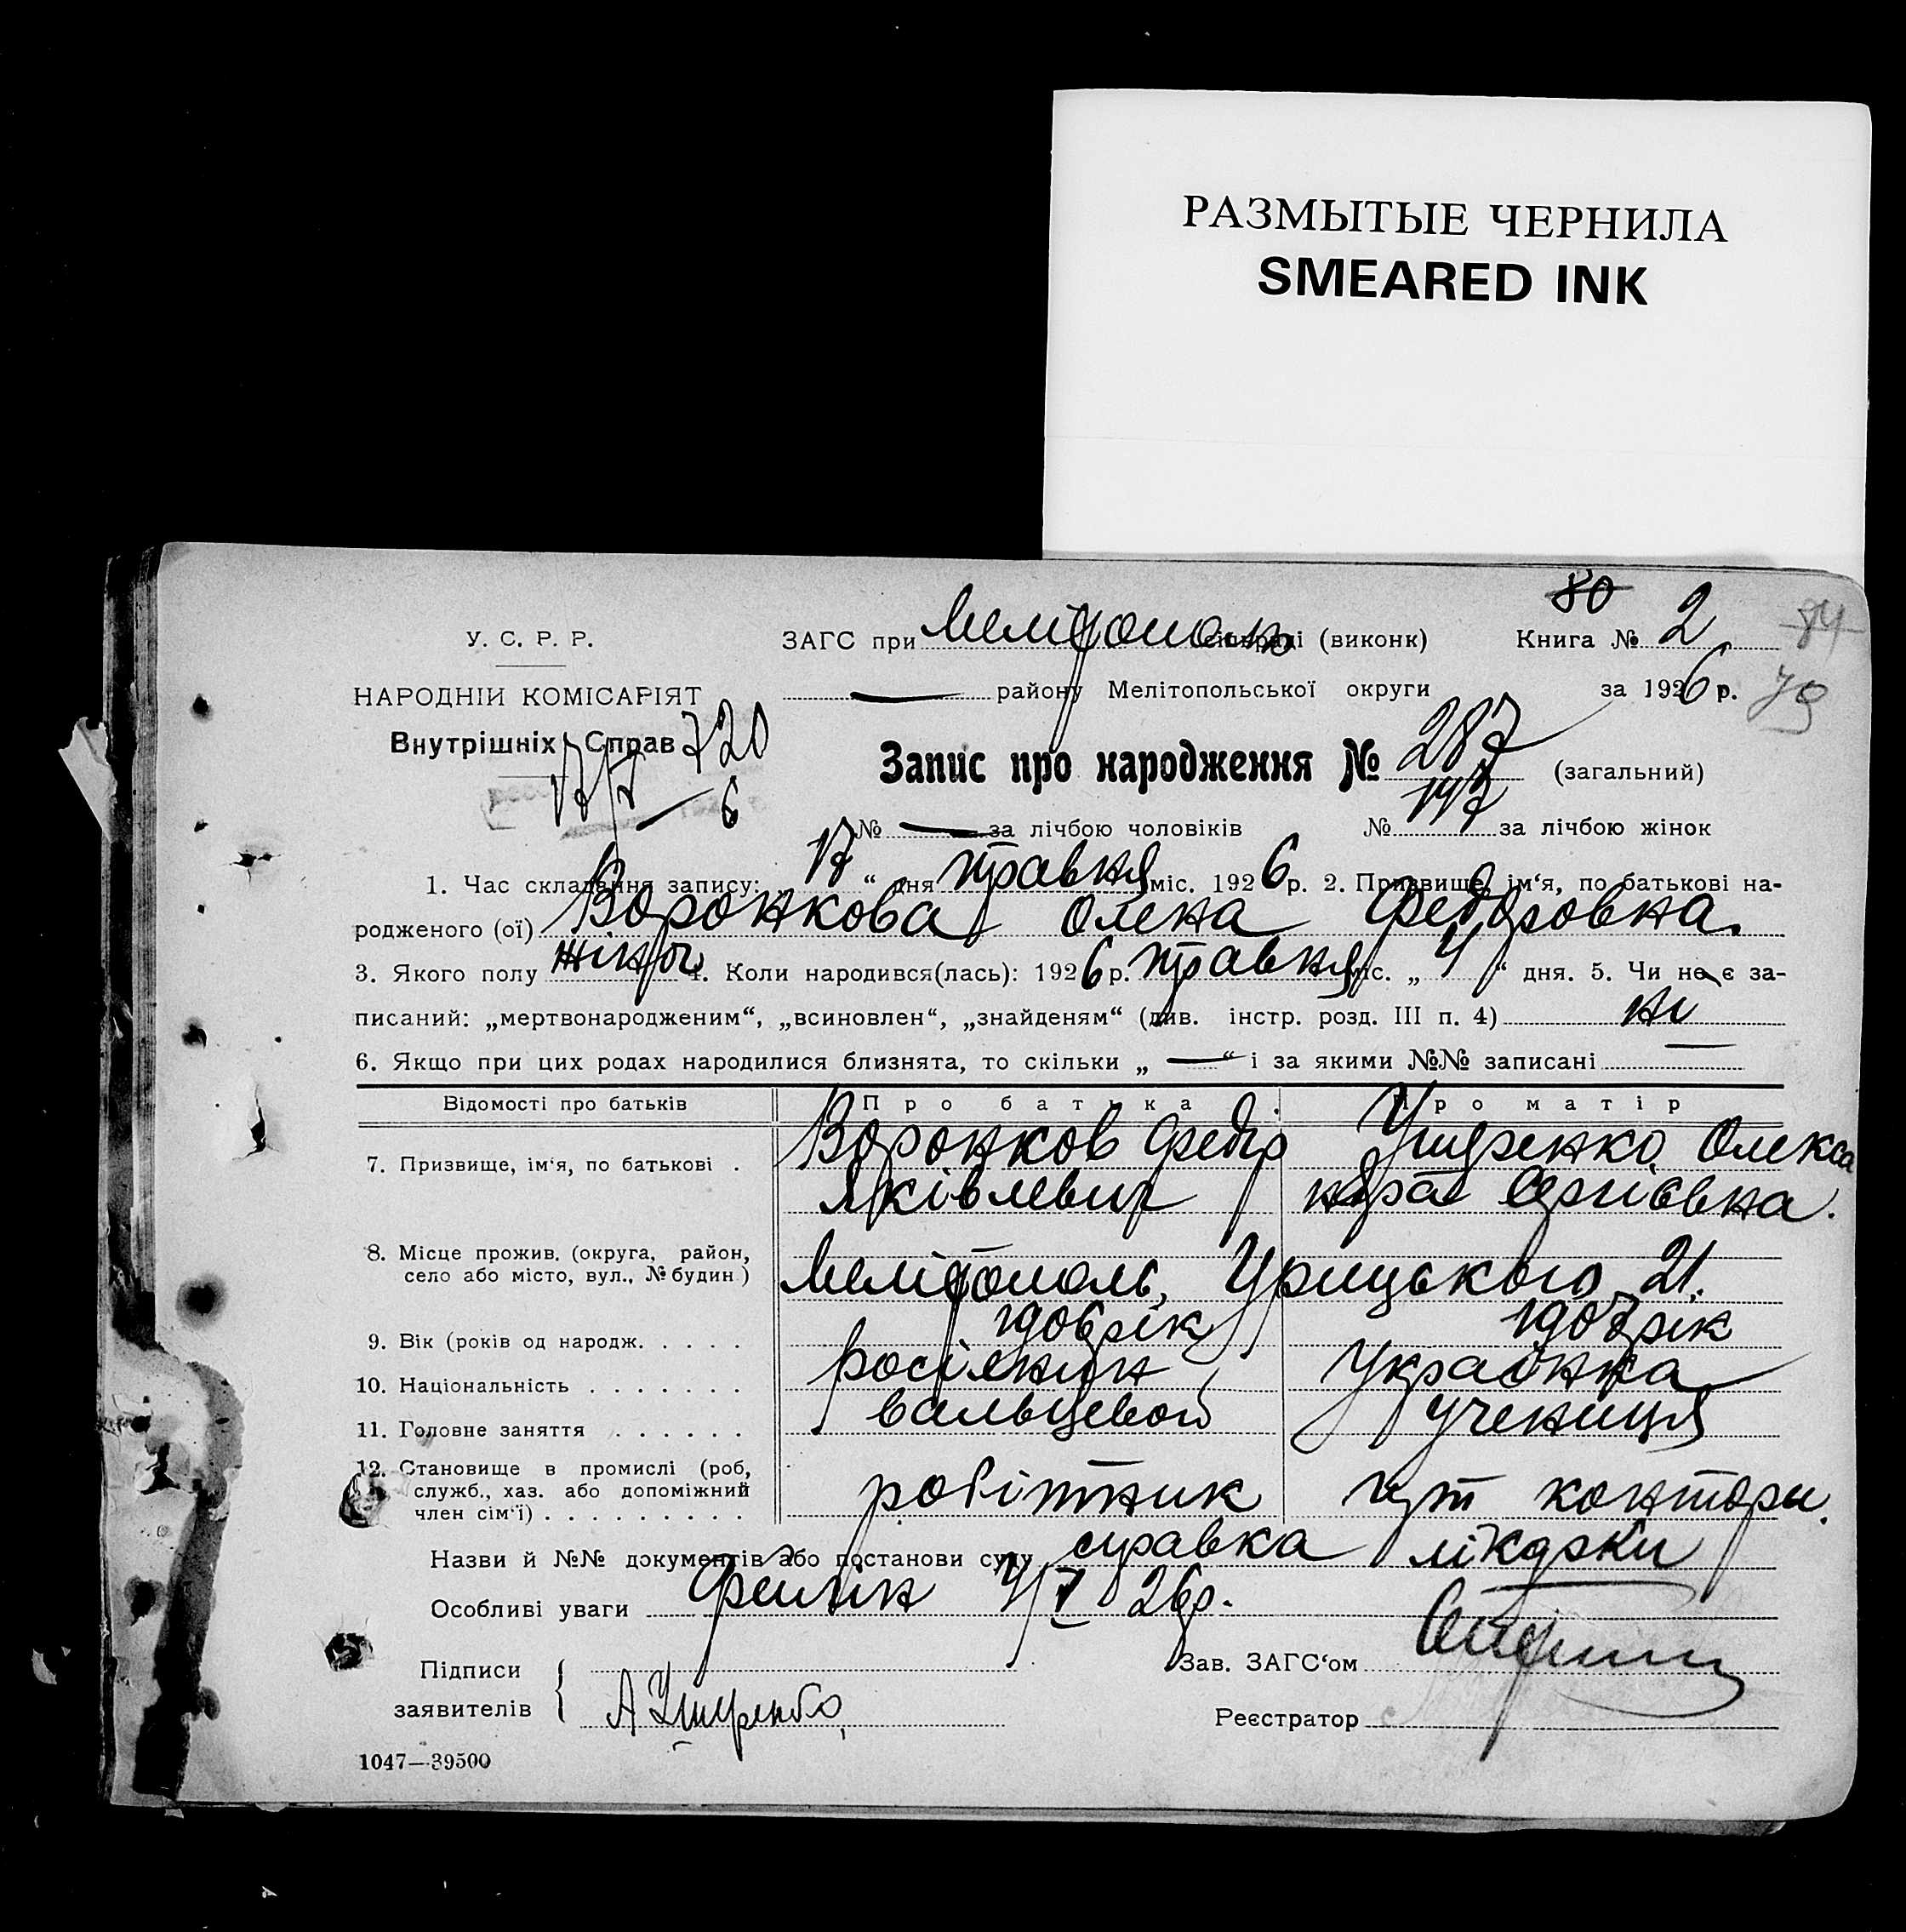 РАЗМЫТЫЕ ЧЕРНИЛА
SMEARED INK
80
У. С. Р. Р. ЗАГС при Мелітополь сільраді (виконк) Книга № 2 84
НАРОДНІЙ КОМІСАРІЯТ — району Мелітопольської округи за 1926 р. 79
Внутрішніх Справ 720
Запис про народження № 287 (загальний)
6
№ — за лічбою чоловіків № 147 за лічбою жінок
1. Час складання запису: 17 “ дня травня міс. 1926 р. 2. Призвище, ім‘я, по батькові на-
родженого (ої) Воронкова Олена Федоровна.
3. Якого полу жіноч. 4. Коли народився(лась): 1926 р. травня міс. „ 4 “ дня. 5. Чи не є за-
писаний: „мертвонародженим“, „всиновлен“, „знайденям“ (див. інстр. розд. III п. 4) ні
6. Якщо при цих родах народилися близнята, то скільки „ — “ і за якими №№ записані —
Відомості про батьків Про батька Про матір
7. Призвище, ім‘я, по батькові . Воронков Федір Яківлевич Олекса
ндра Сергієвна.
8. Місце прожив. (округа, район,
село або місто, вул., № будин.) Мелітополь, Урицького 21.
9. Вік (років од народж. . . . . 1906 рік 190 рік
10. Національність . . . . . . . росіянин Українка
11. Головне заняття . . . . . . вальцевой учениця
12. Становище в промислі (роб,
служб., хаз. або допоміжний
член сім‘ї) . . . . . . . . . робітник конторы.
Назви й №№ документів або постанови суду справка лікарки
Особливі уваги 4/V 26 р.
Підписи
заявителів
Зав. ЗАГС‘ом
Реєстратор
1047—39500